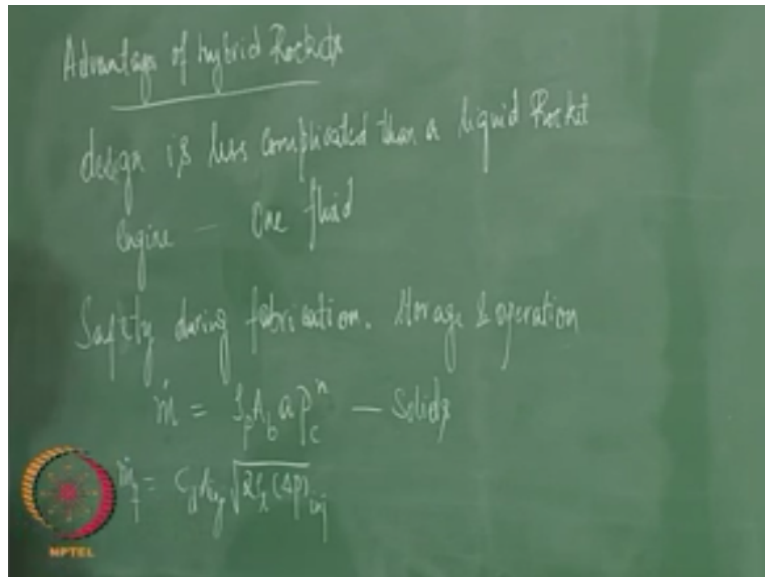 Advantages of hybrid Rockets
design is less complicated than a liquid Rocket
engine — One fluid
Safety during fabrication. Storage & operation
ṁ = ρ_p A_b a p_c^n — Solids
ṁ_f = C_d A_inj √2ρ_l (Δp)_inj
NPTEL